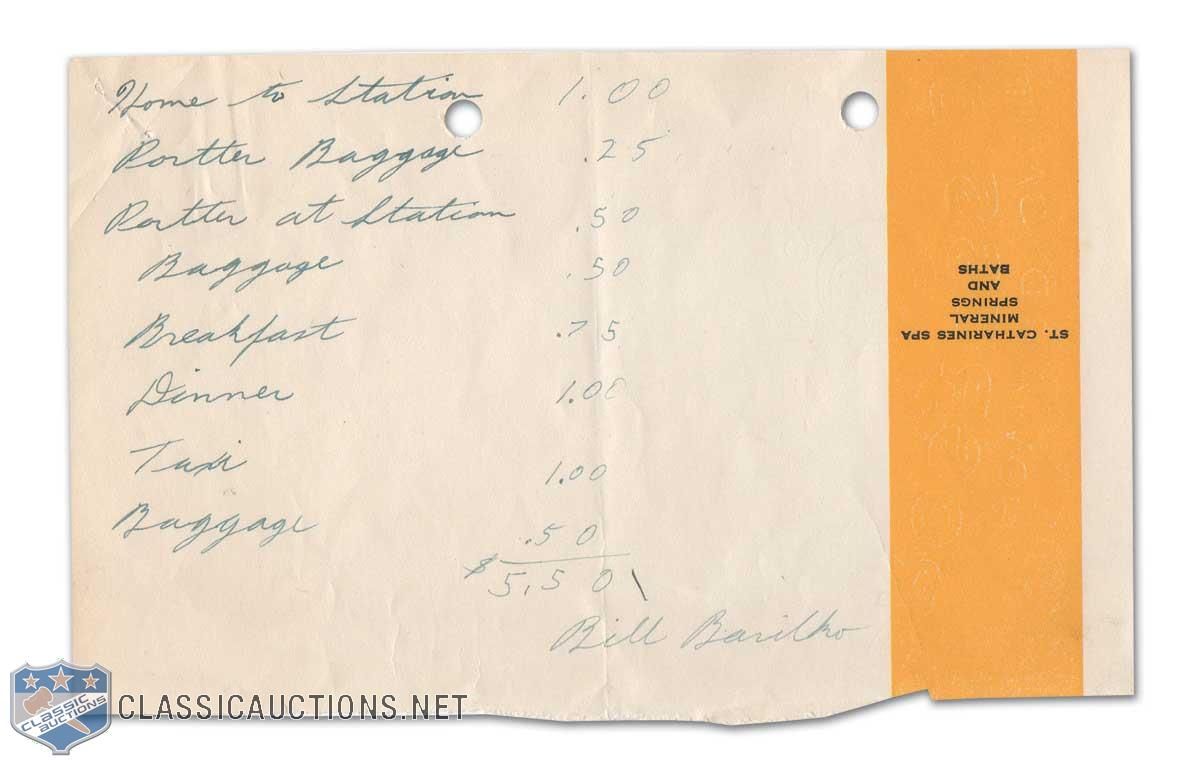 Home to Station 1.00
Portter Baggage .25
Portter at Station .50
Baggage .50
Breakfast .75
Dinner 1.00
Taxi 1.00
Baggage .50
$ 5,50
Bill Barilko
ST. CATHARINES SPA
MINERAL
SPRINGS
AND
BATHS
CLASSIC
AUCTIONS
CLASSICAUCTIONS.NET